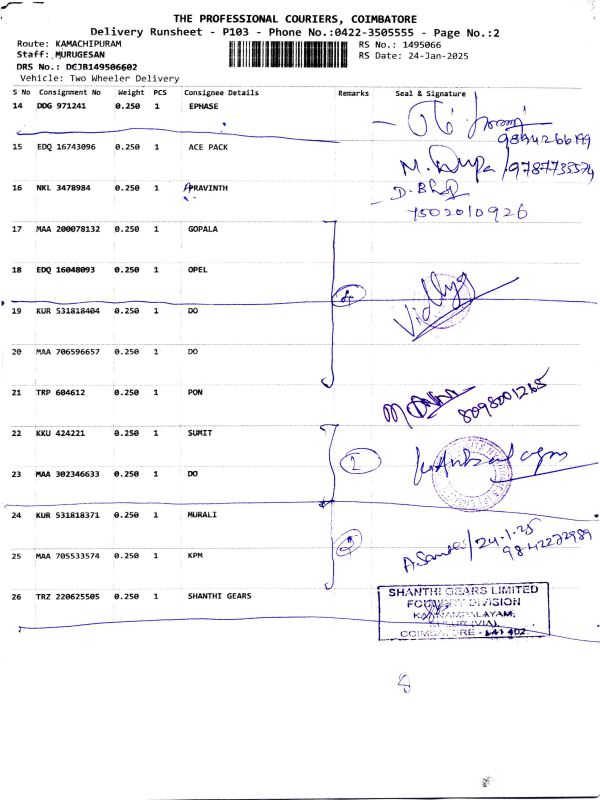 THE PROFESSIONAL COURIERS, COIMBATORE
Delivery Runsheet - P103 - Phone No.:0422-3505555 - Page No.:2
Route: KAMACHIPURAM RS No.: 1495066
Staff: MURUGESAN RS Date: 24-Jan-2025
DRS No.: DCJB149506602
Vehicle: Two Wheeler Delivery
S No Consignment No Weight PCS Consignee Details Remarks Seal & Signature
14 DDG 971241 0.250 1 EPHASE
9894266199
15 EDQ 16743096 0.250 1 ACE PACK
16 NKL 3478984 0.250 1 PRAVINTH
7502010926
17 MAA 200078132 0.250 1 GOPALA
18 EDQ 16048093 0.250 1 OPEL
4 Vidhya
19 KUR 531818404 0.250 1 DO
20 MAA 706596657 0.250 1 DO
21 TRP 604612 0.250 1 PON
8098001265
22 KKU 424221 0.250 1 SUMIT
23 MAA 302346633 0.250 1 DO
24 KUR 531818371 0.250 1 MURALI
24-1-25
25 MAA 705533574 0.250 1 KPM
9842272989
26 TRZ 220625505 0.250 1 SHANTHI GEARS
SHANTHI GEARS LIMITED
FOUNDRY DIVISION
KANNAMPALAYAM,
SULUR (VIA),
COIMBATORE - 641 402.
8